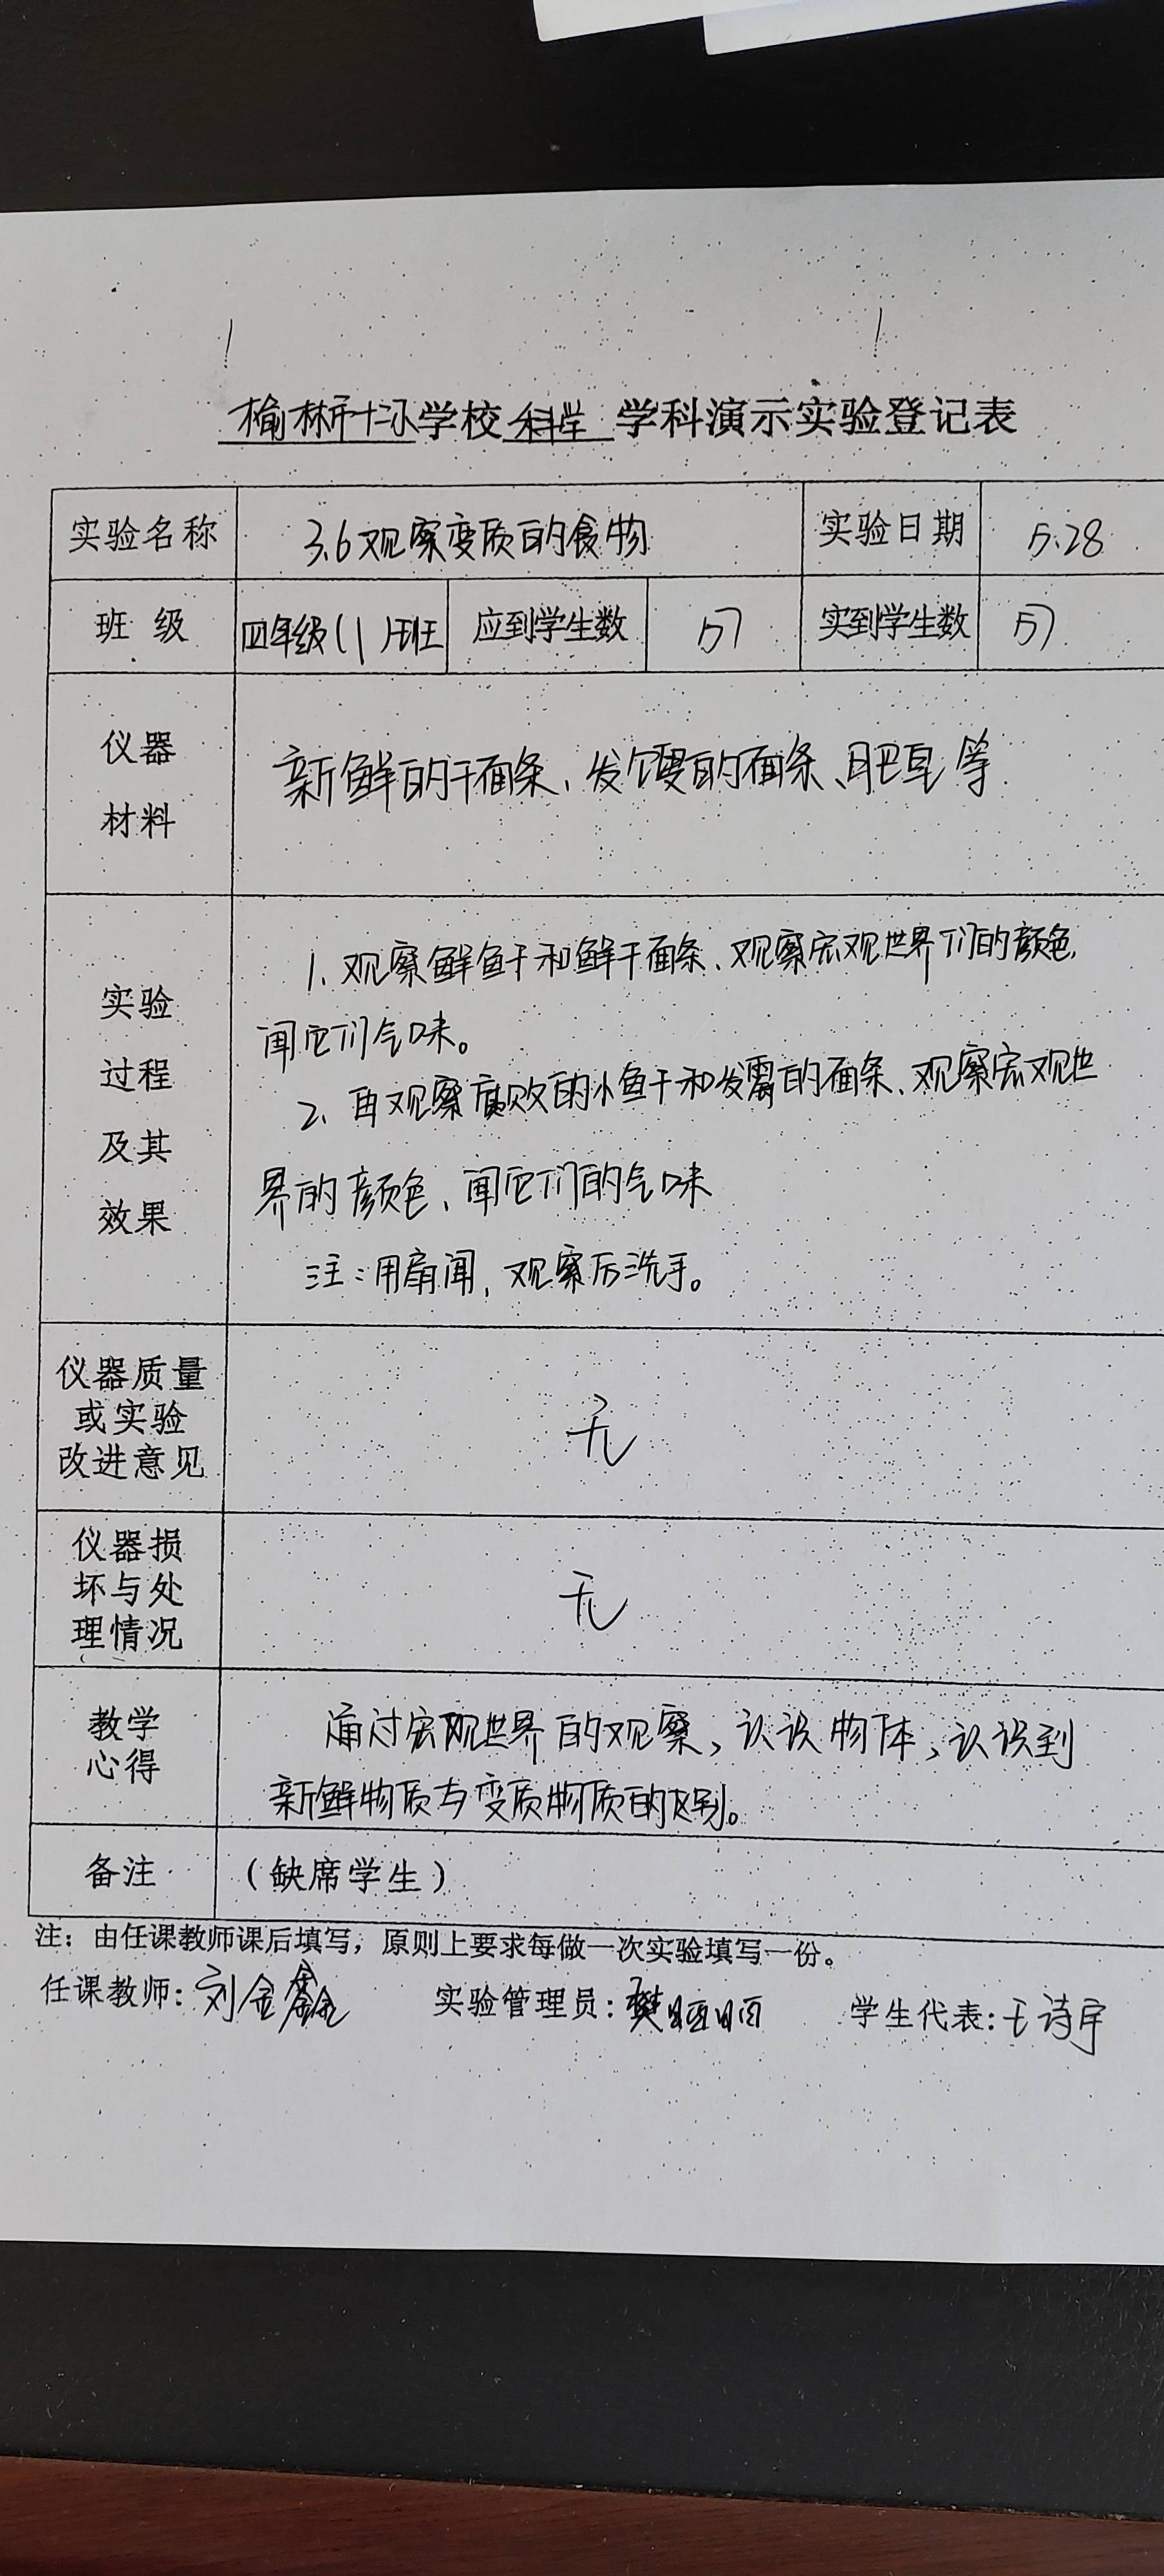 榆林市十二小学校 科学 学科演示实验登记表
实验名称 3.6观察变质的食物 实验日期 5.28
班 级 四年级(1)班 应到学生数 57 实到学生数 57
仪器
材料
新鲜的干面条、发霉的面条、肥皂等
实验
过程
及其
效果
1、观察鲜鱼干和鲜干面条、观察宏观世界们的颜色,
闻它们气味。
2、再观察腐败的小鱼干和发霉的面条、观察宏观世
界的颜色、闻它们的气味
注:用扇闻,观察后洗手。
仪器质量
或实验
改进意见
无
仪器损
坏与处
理情况
无
教学
心得
通过宏观世界的观察,认识物体,认识到
新鲜物质与变质物质的区别。
备注 (缺席学生)
注:由任课教师课后填写,原则上要求每做一次实验填写一份。
任课教师:刘金鑫 实验管理员:樊 学生代表:王诗宇